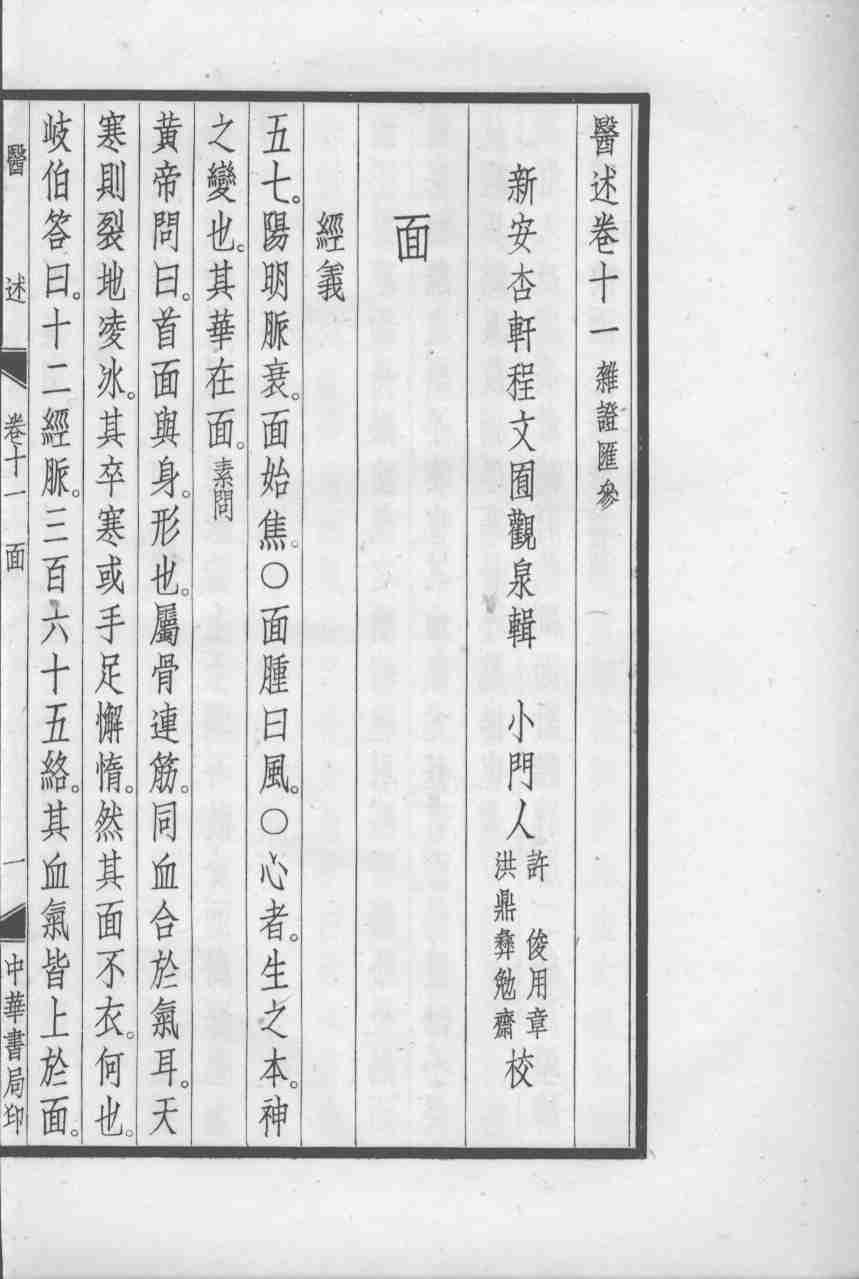 醫述卷十一 雜證匯參
新安杏軒程文囿觀泉輯 小門人 許 俊用章 洪鼎彝勉齋 校
面
經義
五七。陽明脈衰。面始焦。○面腫曰風。○心者。生之本。神
之變也。其華在面。素問
黃帝問曰。首面與身。形也。屬骨連筋。同血合於氣耳。天
寒則裂地凌冰。其卒寒或手足懈惰。然其面不衣。何也。
岐伯答曰。十二經脈。三百六十五絡。其血氣皆上於面。
醫 述 卷十一 面 一 中華書局印